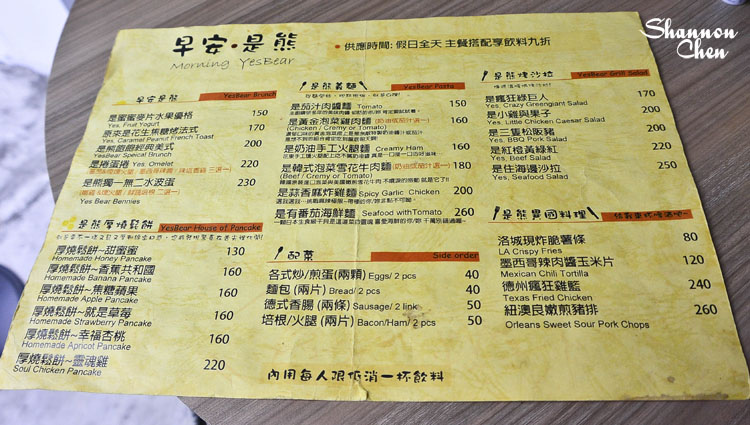 Shannon
Chen
早安•是熊
Morning YesBear
• 供應時間: 假日全天 主餐搭配享飲料九折
早安是熊 YesBear Brunch
是蜜蜜麥片水果優格 150
Yes, Fruit Yogurt
原來是花生焦糖烤法式 170
Yes, Caramel Peanut French Toast
是熊館館經典美式 200
YesBear Special Brunch
是捲捲捲 Yes, Omelet 220
是熊獨一無二水波蛋 230
Yes Bear Bennies
是熊厚燒鬆餅 YesBear House of Pancake
厚燒鬆餅~甜蜜蜜 130
Homemade Honey Pancake
厚燒鬆餅~香蕉共和國 160
Homemade Banana Pancake
厚燒鬆餅~焦糖蘋果 160
Homemade Apple Pancake
厚燒鬆餅~就是草莓 160
Homemade Strawberry Pancake
厚燒鬆餅~幸福杏桃 160
Homemade Apricot Pancake
厚燒鬆餅~靈魂雞 220
Soul Chicken Pancake
是熊義麵 YesBear Pasta
是茄汁肉醬麵 Tomato 150
是黃金泡菜雞肉麵 (奶油或茄汁選一) 160
(Chicken / Cremy or Tomato)
是奶油手工火腿麵 Creamy Ham 160
是韓式泡菜雪花牛肉麵 (奶油或茄汁選一) 180
(Beef / Cremy or Tomato)
是蒜香麻炸雞麵 Spicy Garlic Chicken 200
是有番茄海鮮麵 Seafood withTomato 260
配菜 Side order
各式炒/煎蛋(兩顆) Eggs/ 2 pcs 40
麵包 (兩片) Bread/ 2 pcs 40
德式香腸 (兩條) Sausage/ 2 link 50
培根/火腿 (兩片) Bacon/Ham/ 2 pcs 50
是熊烤沙拉 YesBear Grill Salad
是瘋狂綠巨人 170
Yes, Crazy Greengiant Salad
是小雞與果子 200
Yes, Little Chicken Caesar Salad
是三隻松阪豬 200
Yes, BBQ Pork Salad
是紅橙黃綠紅 220
Yes, Beef Salad
是住海邊沙拉 250
Yes, Seafood Salad
是熊異國料理
洛城現炸脆薯條 80
LA Crispy Fries
墨西哥辣肉醬玉米片 120
Mexican Chili Tortilla
德州瘋狂雞籃 240
Texas Fried Chicken
紐澳良嫩煎豬排 260
Orleans Sweet Sour Pork Chops
內用每人限低消一杯飲料